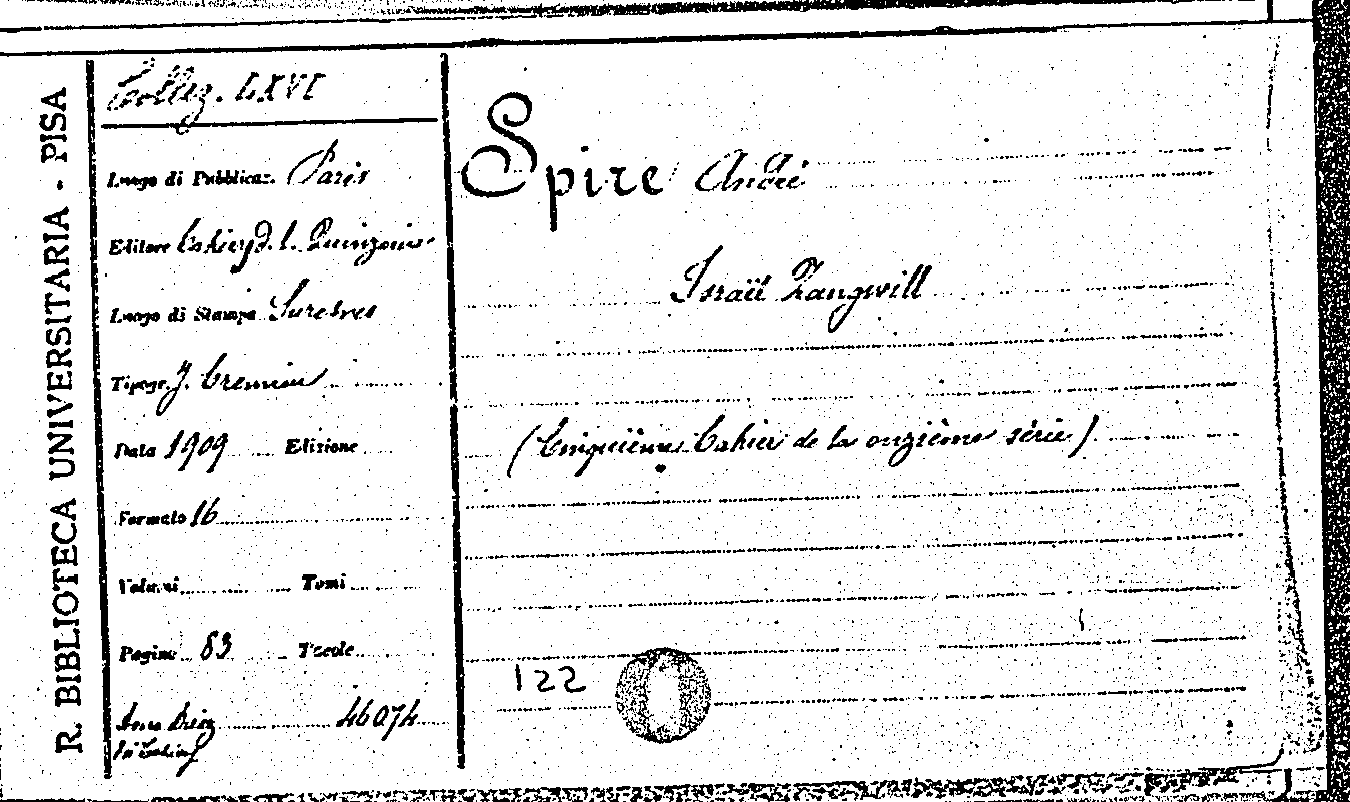 R. BIBLIOTECA UNIVERSITARIA - PISA
Collez. LXVI
Luogo di Pubblicaz. Paris
Editore Cahiers d. l. Quinzaine
Luogo di Stampa Suresnes
Tipogr. J. Cremieu
Data 1909 Edizione
Formato 16
Volumi Tomi
Pagine 83 Tavole
46074
Spire André
Israël Zangwill
(Cinquième Cahier de la onzième série)
122